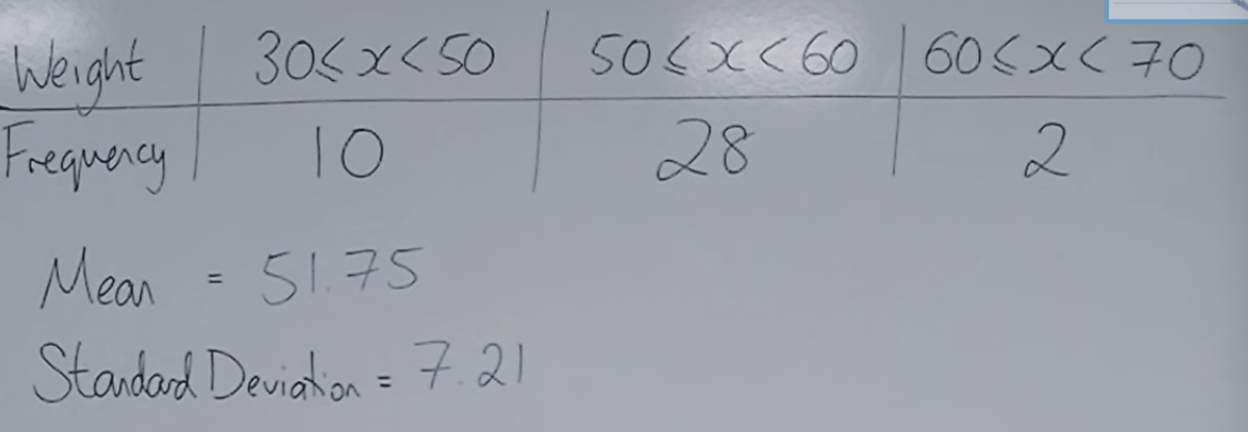 Weight 30≤x<50 50≤x<60 60≤x<70
Frequency 10 28 2
Mean = 51.75
Standard Deviation = 7.21